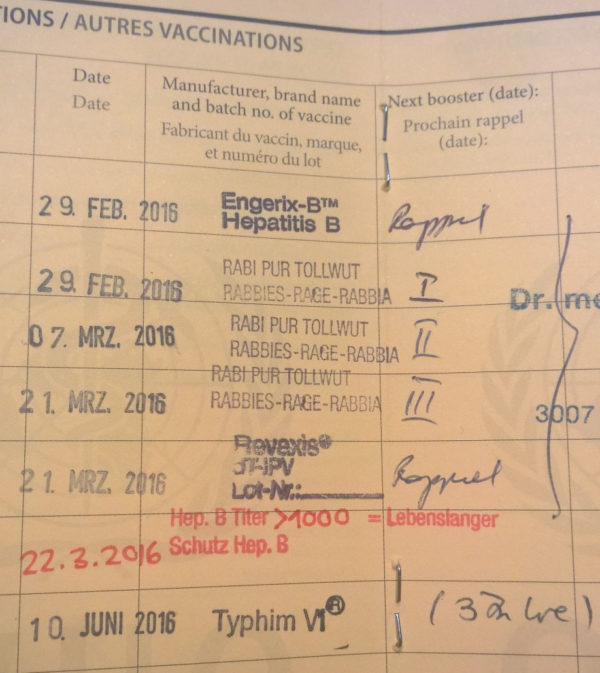 TIONS / AUTRES VACCINATIONS
Date
Date
Manufacturer, brand name
and batch no. of vaccine
Fabricant du vaccin, marque,
et numéro du lot
Next booster (date):
Prochain rappel
(date):
29. FEB. 2016 Engerix-B™
Hepatitis B Rappel
29. FEB. 2016 RABI PUR TOLLWUT
RABBIES-RAGE-RABBIA I
Dr. me
07. MRZ. 2016 RABI PUR TOLLWUT
RABBIES-RAGE-RABBIA II
21. MRZ. 2016 RABI PUR TOLLWUT
RABBIES-RAGE-RABBIA III
3007
21. MRZ. 2016 Revaxis®
dT-IPV
Lot-Nr.: Rappel
Hep. B Titer >1000 = Lebenslanger
22.3.2016 Schutz Hep. B
10. JUNI 2016 Typhim Vi® (3 Jahre)